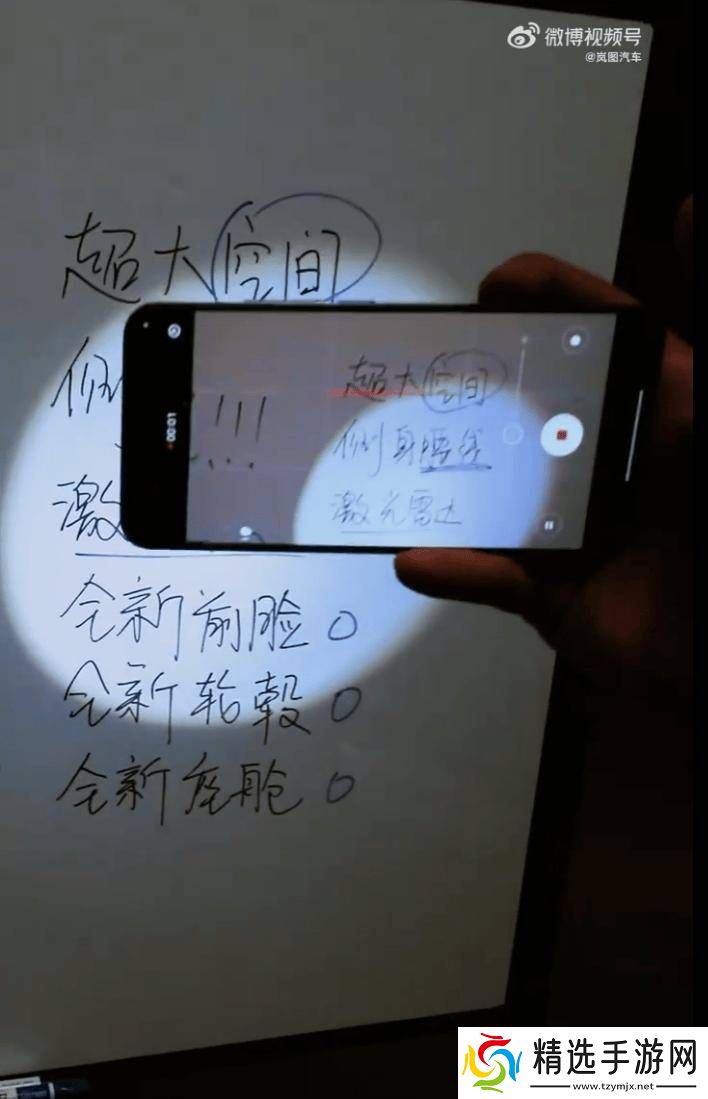 微博视频号
@岚图汽车
超大空间
侧
激
全新前脸 0
全新轮毂 0
全新座舱 0
00:01
!!!
超大空间
侧身腰线
激光雷达
精选手游网
www.tzymjx.net